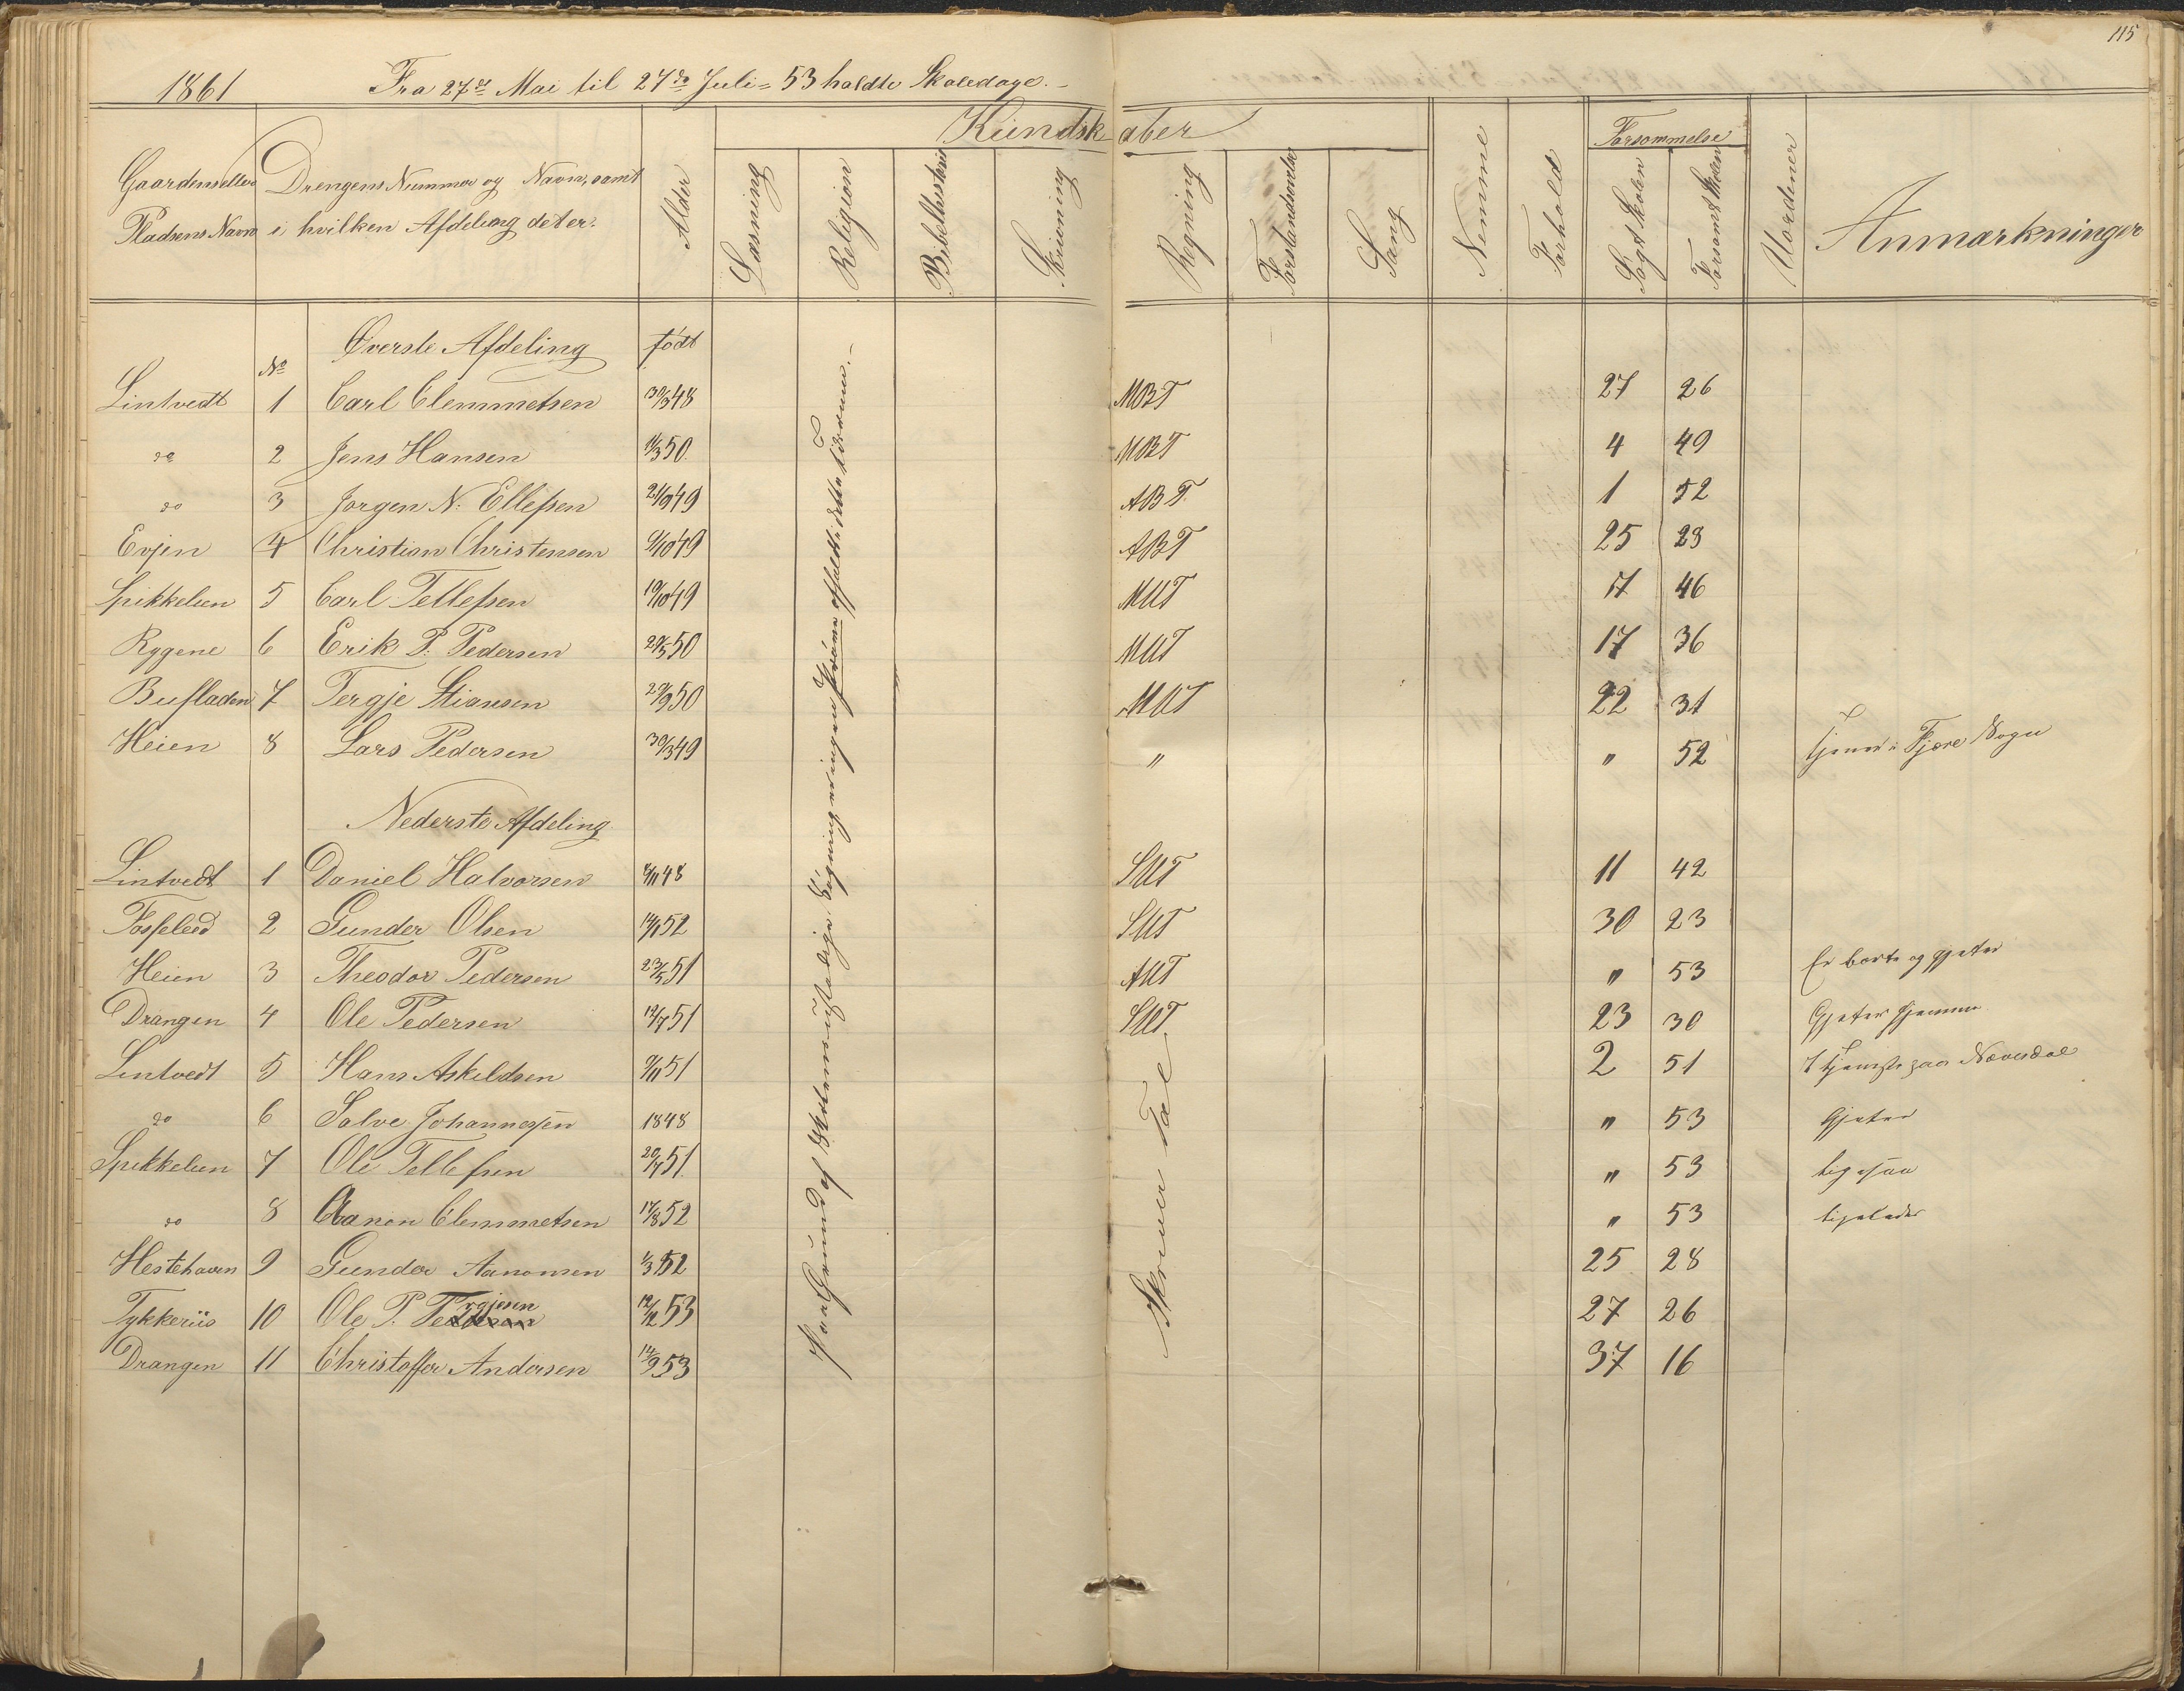 115
1861 Fra 27de Mai til 27de Juli = 53 holdte Skoledage.
Kundskaber
Gaardens eller Pladsens Navn
Drengens Nummer og Navn, samt i hvilken Afdeling det er.
Alder
Læsning
Religion
Bibelhistorie
Skrivning
Regning
Forstandsøvelse
Sang
Nemme
Forhold
Forsømmelse
Søgt Skolen
Forsømt Skolen
Uordener
Anmærkninger
No Øverste Afdeling født
Lintvedt 1 Carl Clemmetsen 30/3 48 MBT 27 26
do 2 Jens Hansen 11/3 50. MBT 4 49
do 3 Jørgen N. Ellefsen 21/9 49 ABT 1 52
Evjen 4 Christian Christensen 9/10 49 ABT 25 28
Spikkelien 5 Carl Tellefsen 10/10 49 MUT 17 46
Rygene 6 Erik P. Pedersen 29/5 50 MUT 17 36
Bufladen 7 Tergje Stiansen 29/9 50 MUT 22 31
Heien 8 Lars Pedersen 30/3 49 " " 52 tjener i Fjære Sogn
Nederste Afdeling
Lintvedt 1 Daniel Halvorsen 8/11 48 SUT 11 42
Fosselied 2 Gunder Olsen 14/1 52 SUT 30 23
Heien 3 Theodor Pedersen 23/5 51 AUT " 53 Er borte og gjeter
Drangen 4 Ole Pedersen 19/7 51 SUT. 23 30 Gjeter hjemme
Lintvedt 5 Hans Askildsen 9/11 51 2 51 I tjeneste paa Nævesdal
do 6 Salve Johannesen 1848 " 53 Gjeter
Spikkelien 7 Ole Tellefsen 20/7 51. " 53 ligesaa
do 8 Aanon Clemmetsen 17/8 52 " 53 ligeledes
Hestehaven 9 Gunder Aanonsen 1/3 52 25 28
Tykkeriis 10 Ole P. Tergjesen 12/12 53 27 26
Drangen 11 Christoffer Andersen 14/9 53 37 16
Paa Grund af Skolens ustadige Søgning er ingen Prøve affholdt i dette Tidsrum.
Skriver Tal